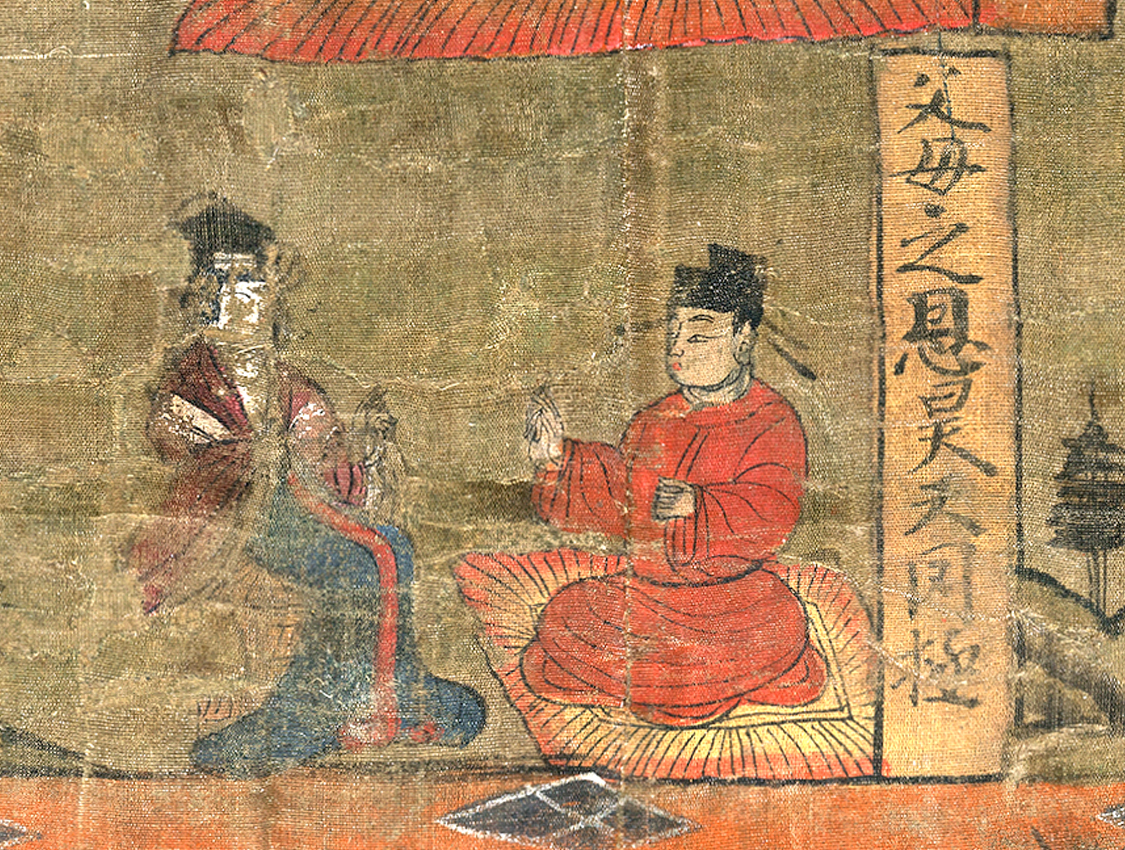 父母之恩昊天罔極